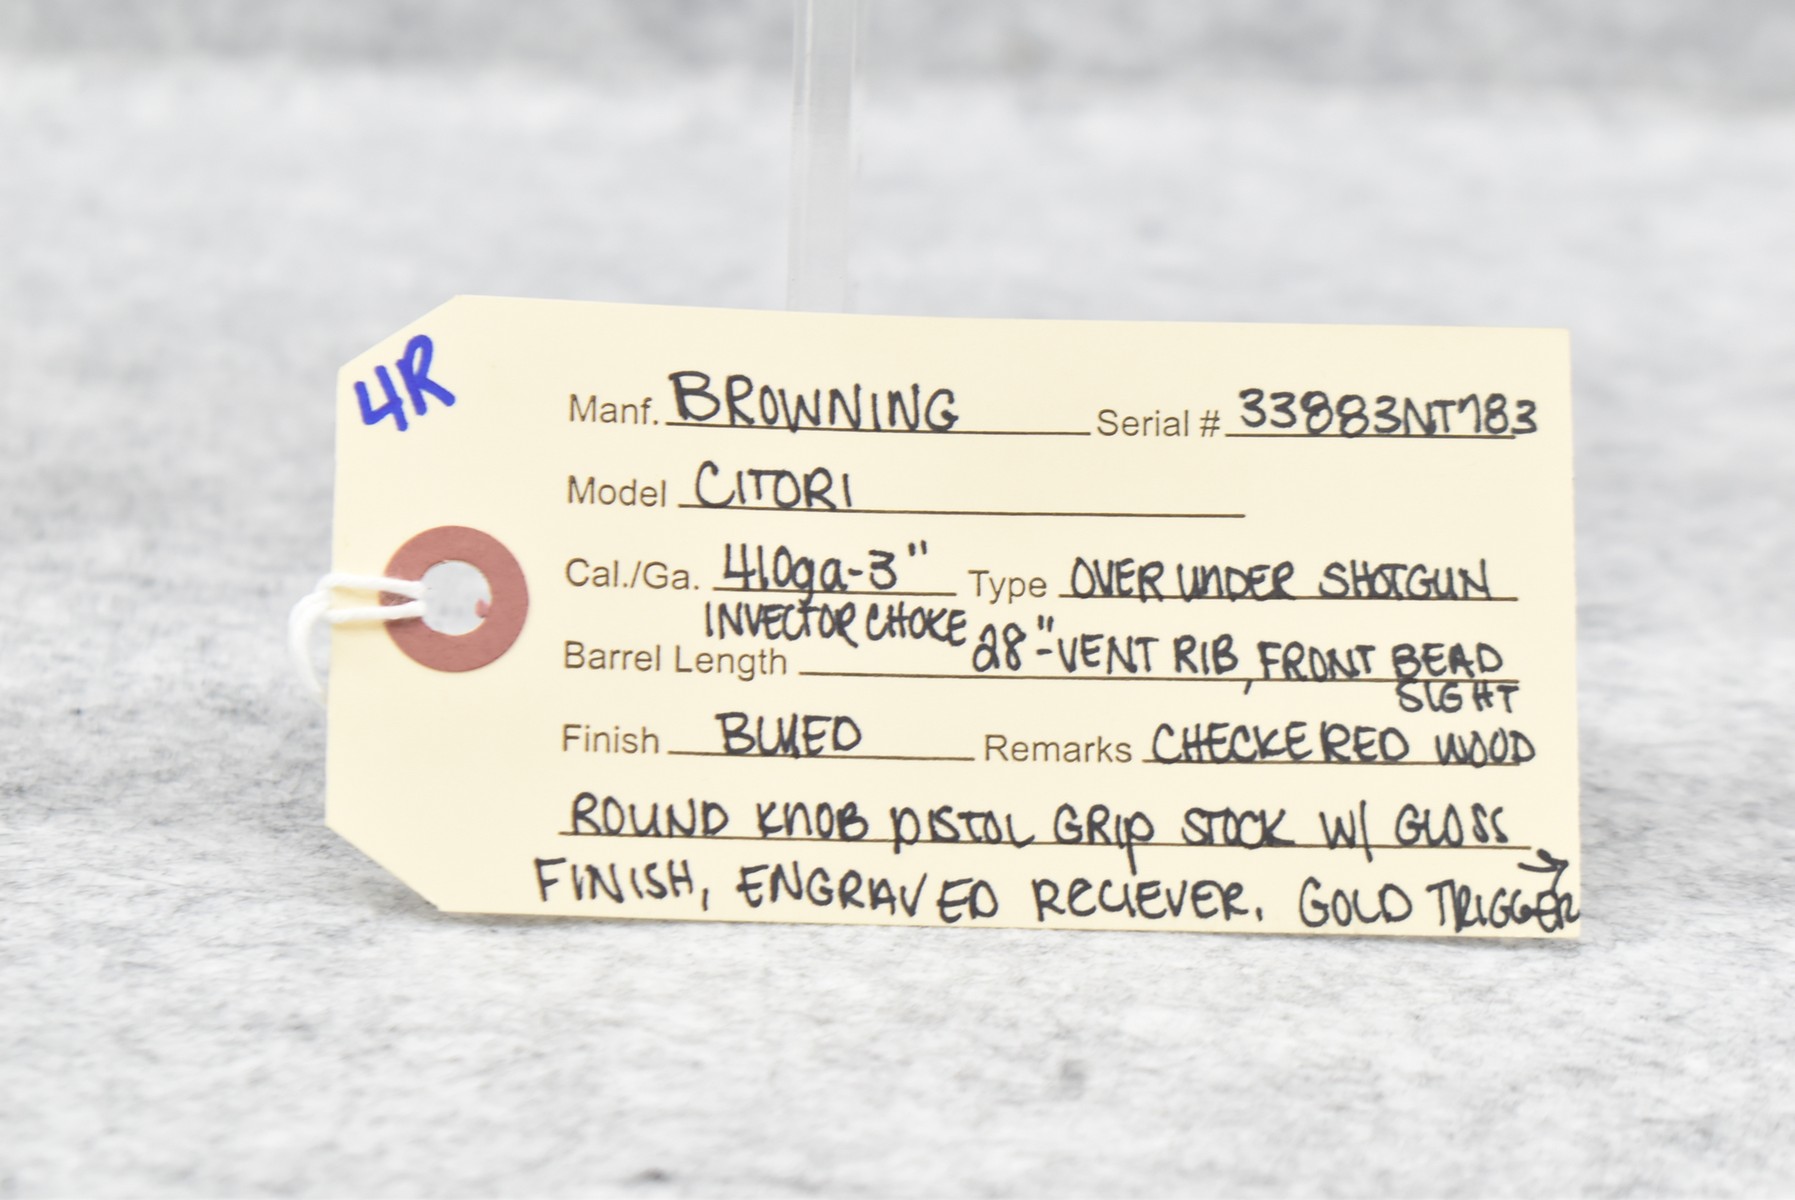 4R
Manf. BROWNING Serial # 33883NT783
Model CITORI
Cal./Ga. 410ga-3" Type OVER UNDER SHOTGUN
INVECTOR CHOKE
Barrel Length 28"-VENT RIB, FRONT BEAD
SIGHT
Finish BLUED Remarks CHECKERED WOOD
ROUND KNOB PISTOL GRIP STOCK W/ GLOSS
FINISH, ENGRAVED RECIEVER. GOLD TRIGGER →